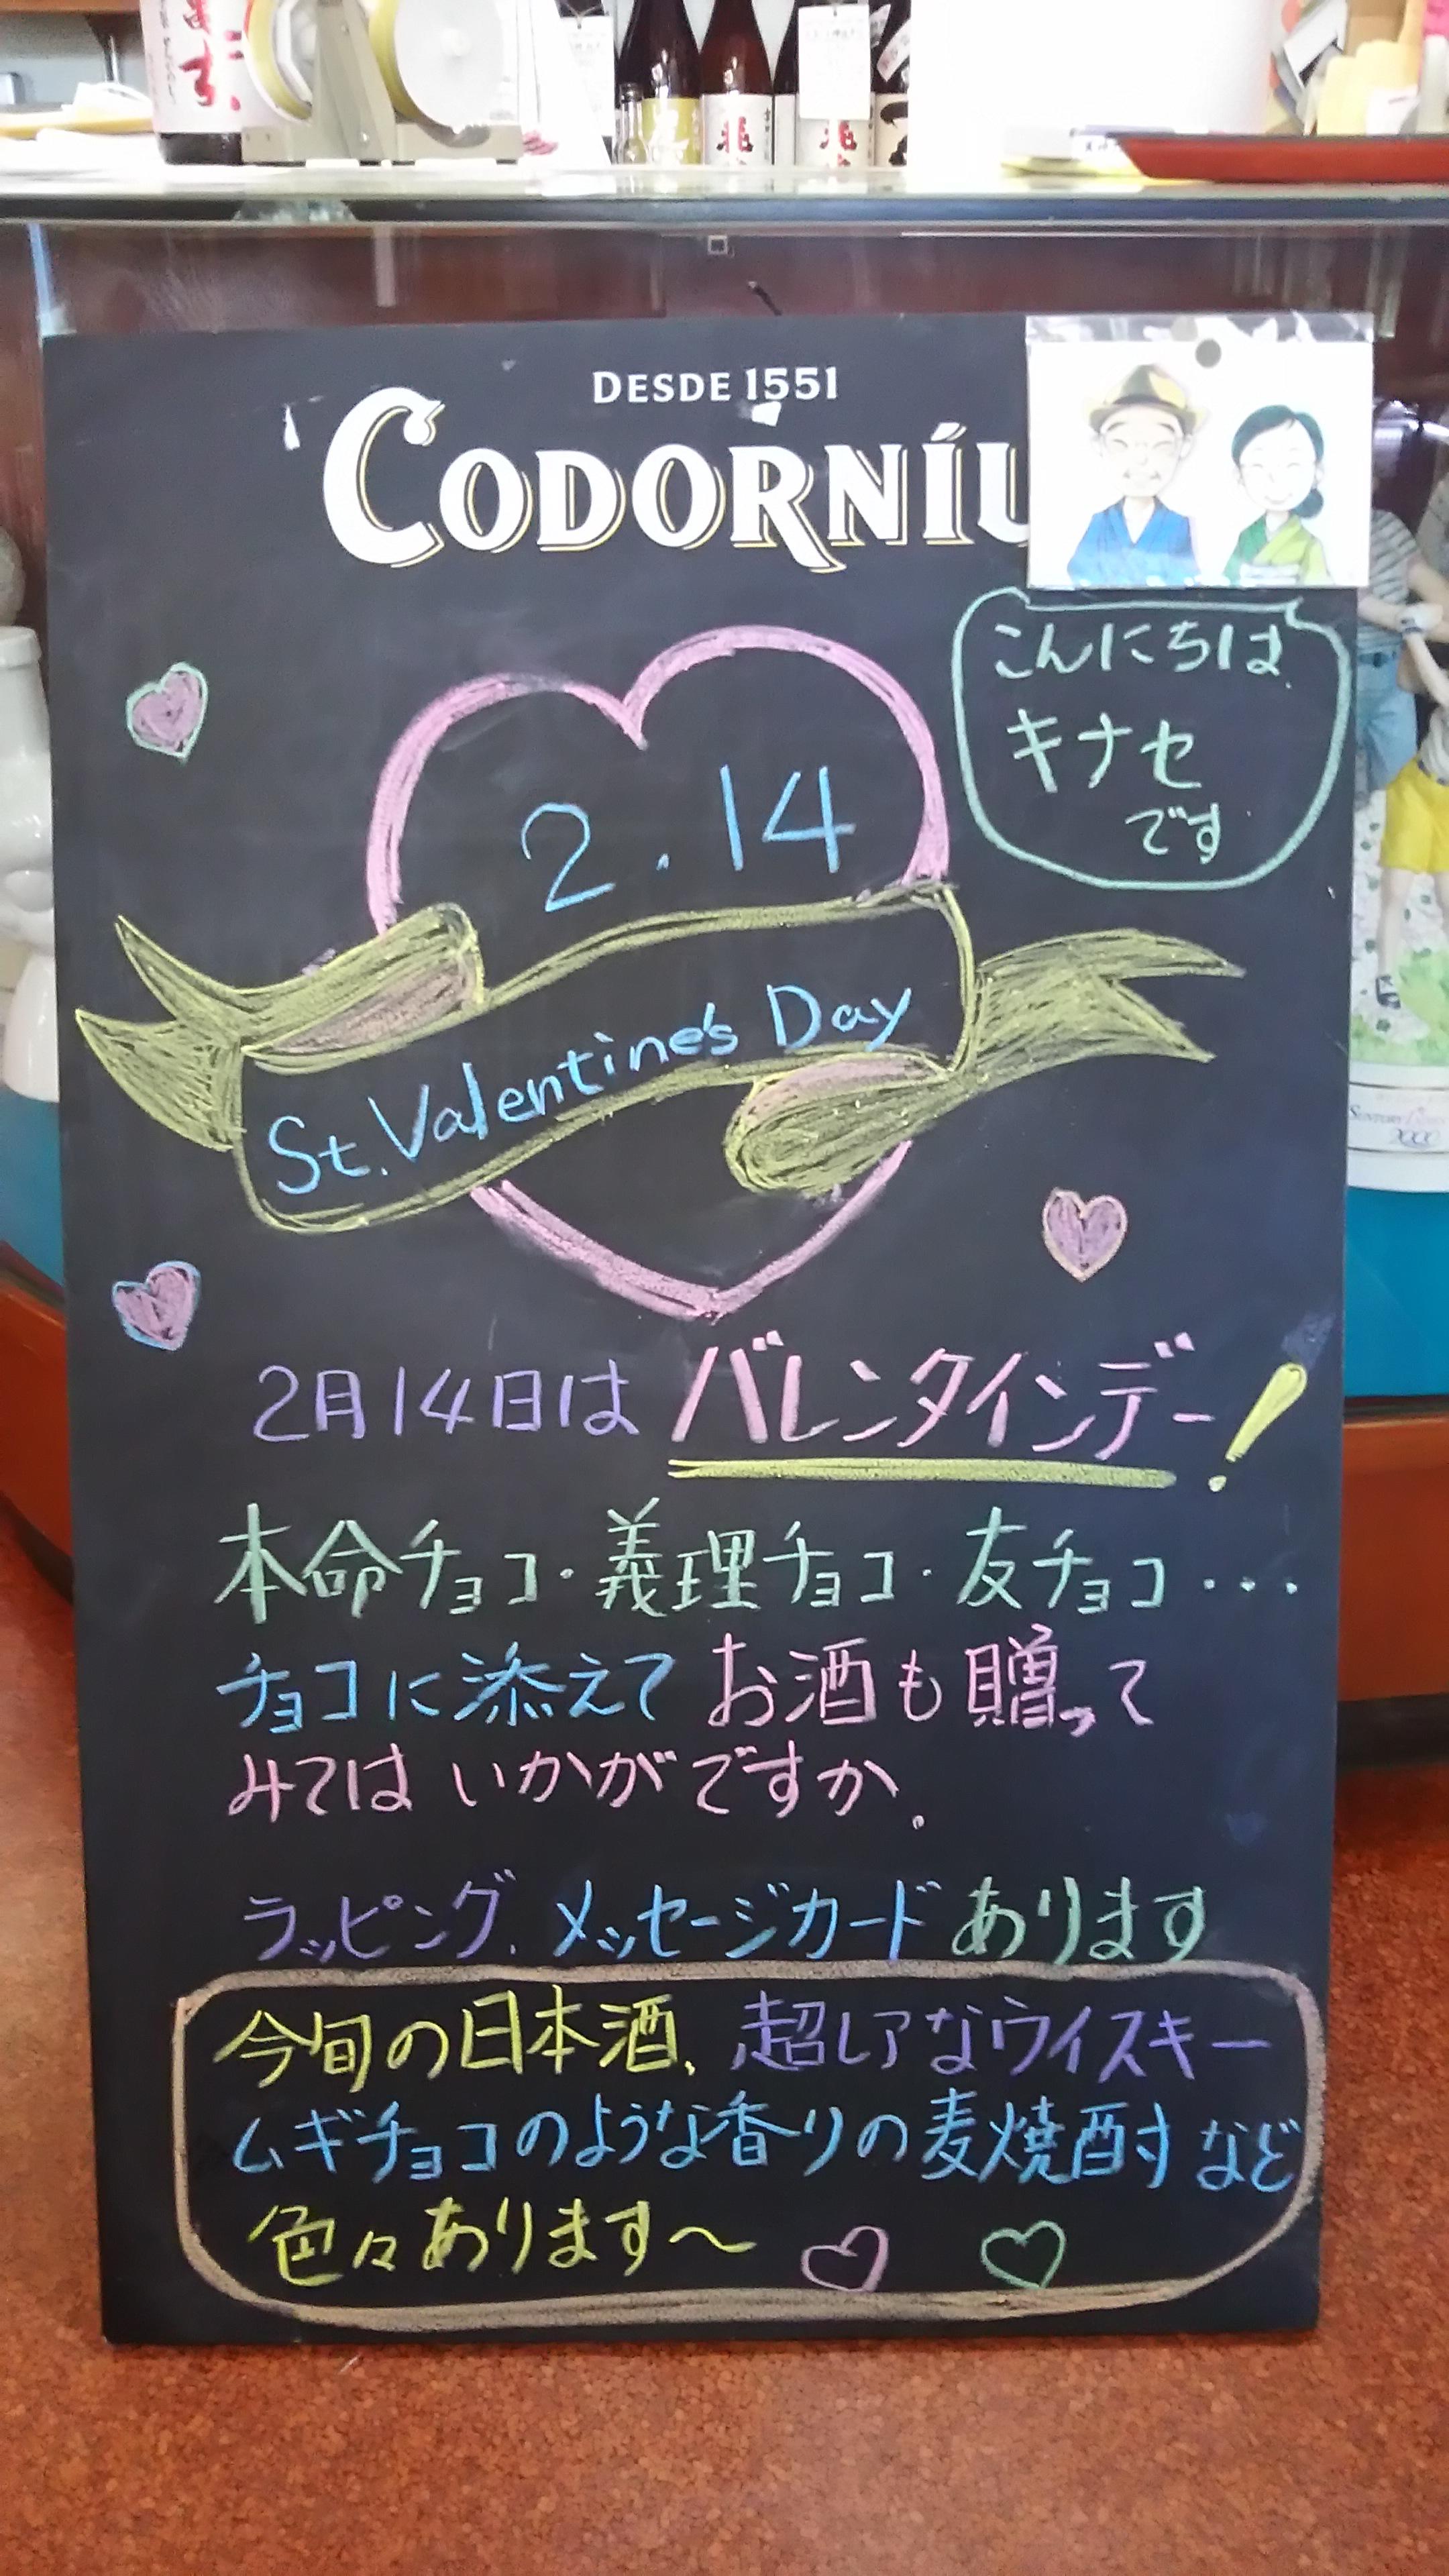 DESDE 1551
CODORNÍU
こんにちは
キナセ
です
2.14
St. Valentine's Day
2月14日はバレンタインデー！
本命チョコ・義理チョコ・友チョコ・・・
チョコに添えてお酒も贈って
みてはいかがですか。
ラッピング、メッセージカードあります
今旬の日本酒、超レアなウイスキー
ムギチョコのような香りの麦焼酎など
色々あります～
SUNTORY
2000